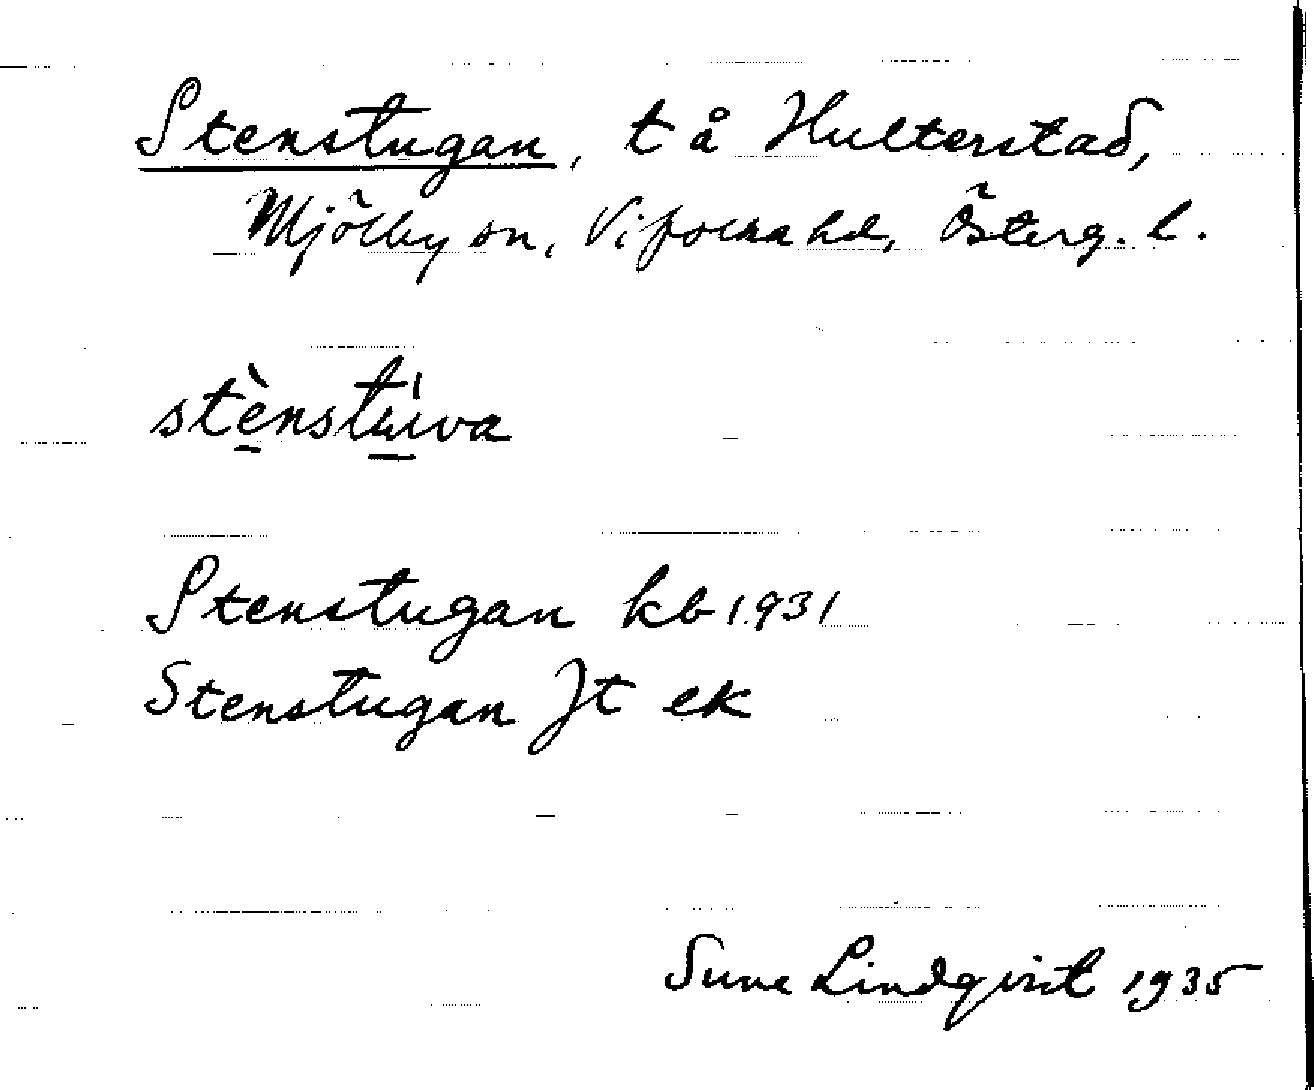 Stenstugan, t å Hulterstad,
Mjölby sn, Vifolka hd, Österg. l.
stènstúva
Stenstugan kb 1931
Stenstugan Jt ek
Sune Lindqvist 1935